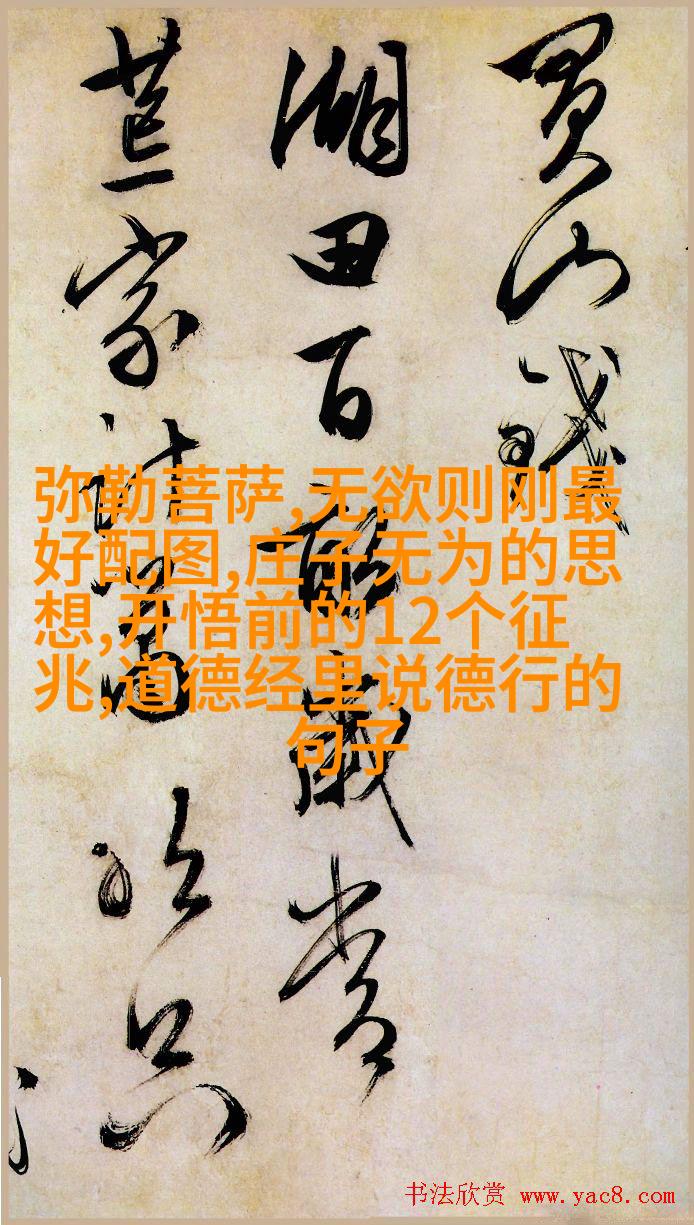 買山錢
湖田百畝歲常
荒家計只
弥勒菩萨,无欲则刚最
好配图,庄子无为的思
想,开悟前的12个征
兆,道德经里说德行的
句子
书法欣赏 www.yac8.com